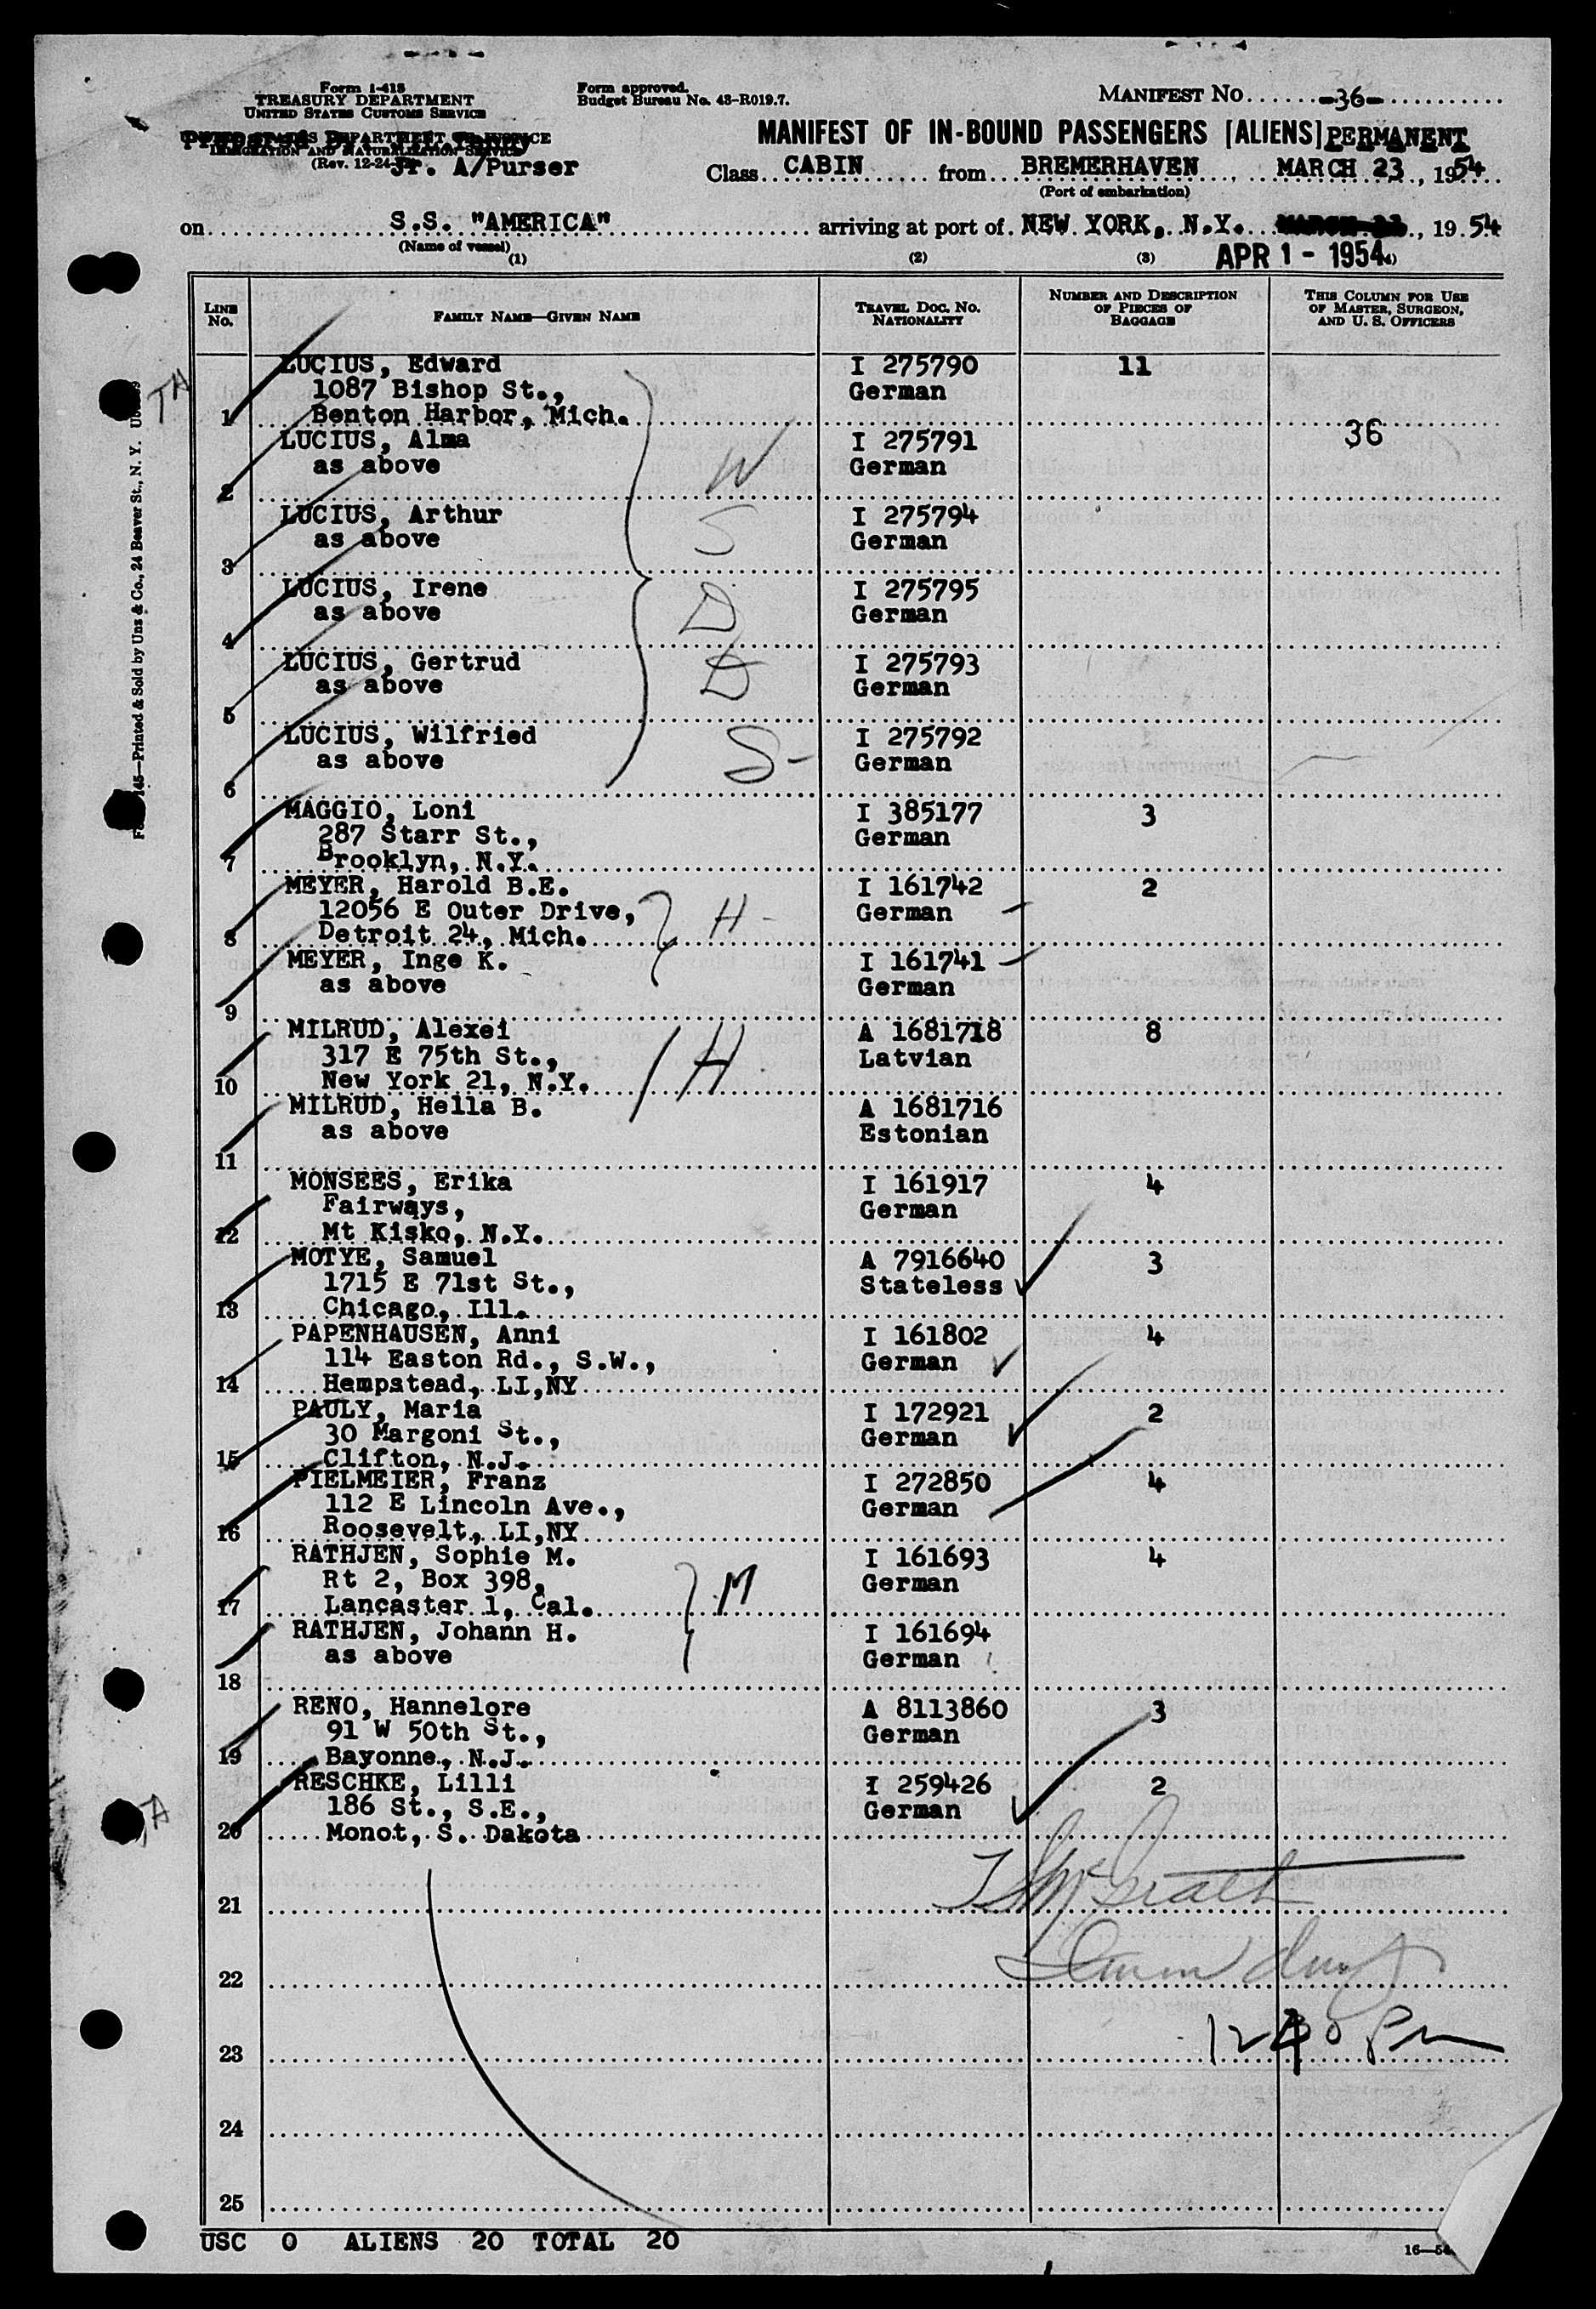 Form I-418
TREASURY DEPARTMENT
UNITED STATES CUSTOMS SERVICE
Form approved.
Budget Bureau No. 43-R019.7.
MANIFEST NO. -36-
IMMIGRATION AND NATURALIZATION SERVICE
(Rev. 12-24- Jr. A/Purser
MANIFEST OF IN-BOUND PASSENGERS [ALIENS] PERMANENT
Class CABIN from BREMERHAVEN, MARCH 23, 1954
(Port of embarkation)
on S.S. "AMERICA" arriving at port of NEW YORK, N.Y. , 19 54
(Name of vessel)
APR 1 - 1954
(1) (2) (3) (4)
LINE No. FAMILY NAME—GIVEN NAME TRAVEL DOC. NO. NATIONALITY NUMBER AND DESCRIPTION OF PIECES OF BAGGAGE THIS COLUMN FOR USE OF MASTER, SURGEON, AND U. S. OFFICERS
LUCIUS, Edward I 275790 11
TA 1087 Bishop St., German
1 Benton Harbor, Mich. 36
LUCIUS, Alma I 275791
as above W German
2
LUCIUS, Arthur I 275794
as above S German
3
LUCIUS, Irene I 275795
as above D German
4
LUCIUS, Gertrud I 275793
as above D German
5
LUCIUS, Wilfried I 275792
as above S- German
6
MAGGIO, Loni I 385177 3
287 Starr St., German
7 Brooklyn, N.Y.
MEYER, Harold B.E. I 161742 2
12056 E Outer Drive, H- German
8 Detroit 24, Mich.
MEYER, Inge K. I 161741
as above German
9
MILRUD, Alexei A 1681718 8
317 E 75th St., H Latvian
10 New York 21, N.Y.
MILRUD, Hella B. A 1681716
as above Estonian
11
MONSEES, Erika I 161917 4
Fairways, German
12 Mt Kisko, N.Y.
MOTYE, Samuel A 7916640 3
1715 E 71st St., Stateless
13 Chicago, Ill.
PAPENHAUSEN, Anni I 161802 4
114 Easton Rd., S.W., German
14 Hempstead, LI,NY
PAULY, Maria I 172921 2
30 Margoni St., German
15 Clifton, N.J.
PIELMEIER, Franz I 272850 4
112 E Lincoln Ave., German
16 Roosevelt, LI,NY
RATHJEN, Sophie M. I 161693 4
Rt 2, Box 398, M German
17 Lancaster 1, Cal.
RATHJEN, Johann H. I 161694
as above German
18
RENO, Hannelore A 8113860 3
91 W 50th St., German
19 Bayonne, N.J.
RESCHKE, Lilli I 259426 2
186 St., S.E., German
20 Monot, S. Dakota
21
22
23
24
25
USC 0 ALIENS 20 TOTAL 20
145—Printed & Sold by Unz & Co., 24 Beaver St., N. Y.